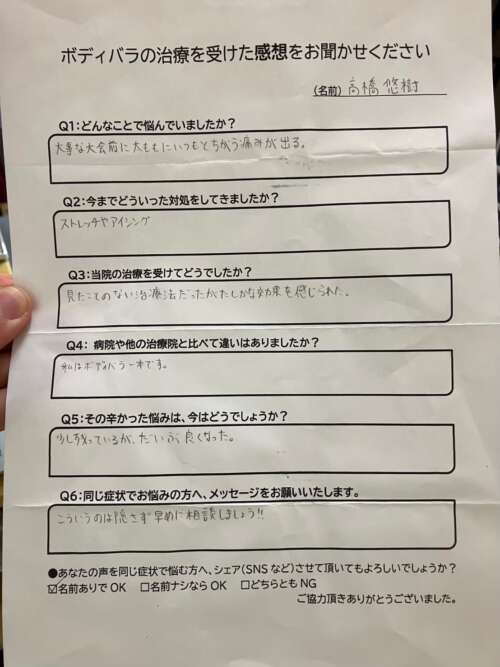 ボディバラの治療を受けた感想をお聞かせください
(名前) 高橋 悠樹
Q1:どんなことで悩んでいましたか?
大事な大会前に太ももにいつもとちがう痛みが出る。
Q2:今までどういった対処をしてきましたか?
ストレッチやアイシング
Q3:当院の治療を受けてどうでしたか?
見たことのない治療法だったがたしかな効果を感じられた。
Q4: 病院や他の治療院と比べて違いはありましたか?
私はボディバラ一本です。
Q5:その辛かった悩みは、今はどうでしょうか?
少し残っているが、だいぶ良くなった。
Q6:同じ症状でお悩みの方へ、メッセージをお願いいたします。
こういうのは隠さず早めに相談しましょう!!
●あなたの声を同じ症状で悩む方へ、シェア(SNSなど)させて頂いてもよろしいでしょうか?
☑名前ありで OK □名前ナシなら OK □どちらとも NG
ご協力頂きありがとうございました。